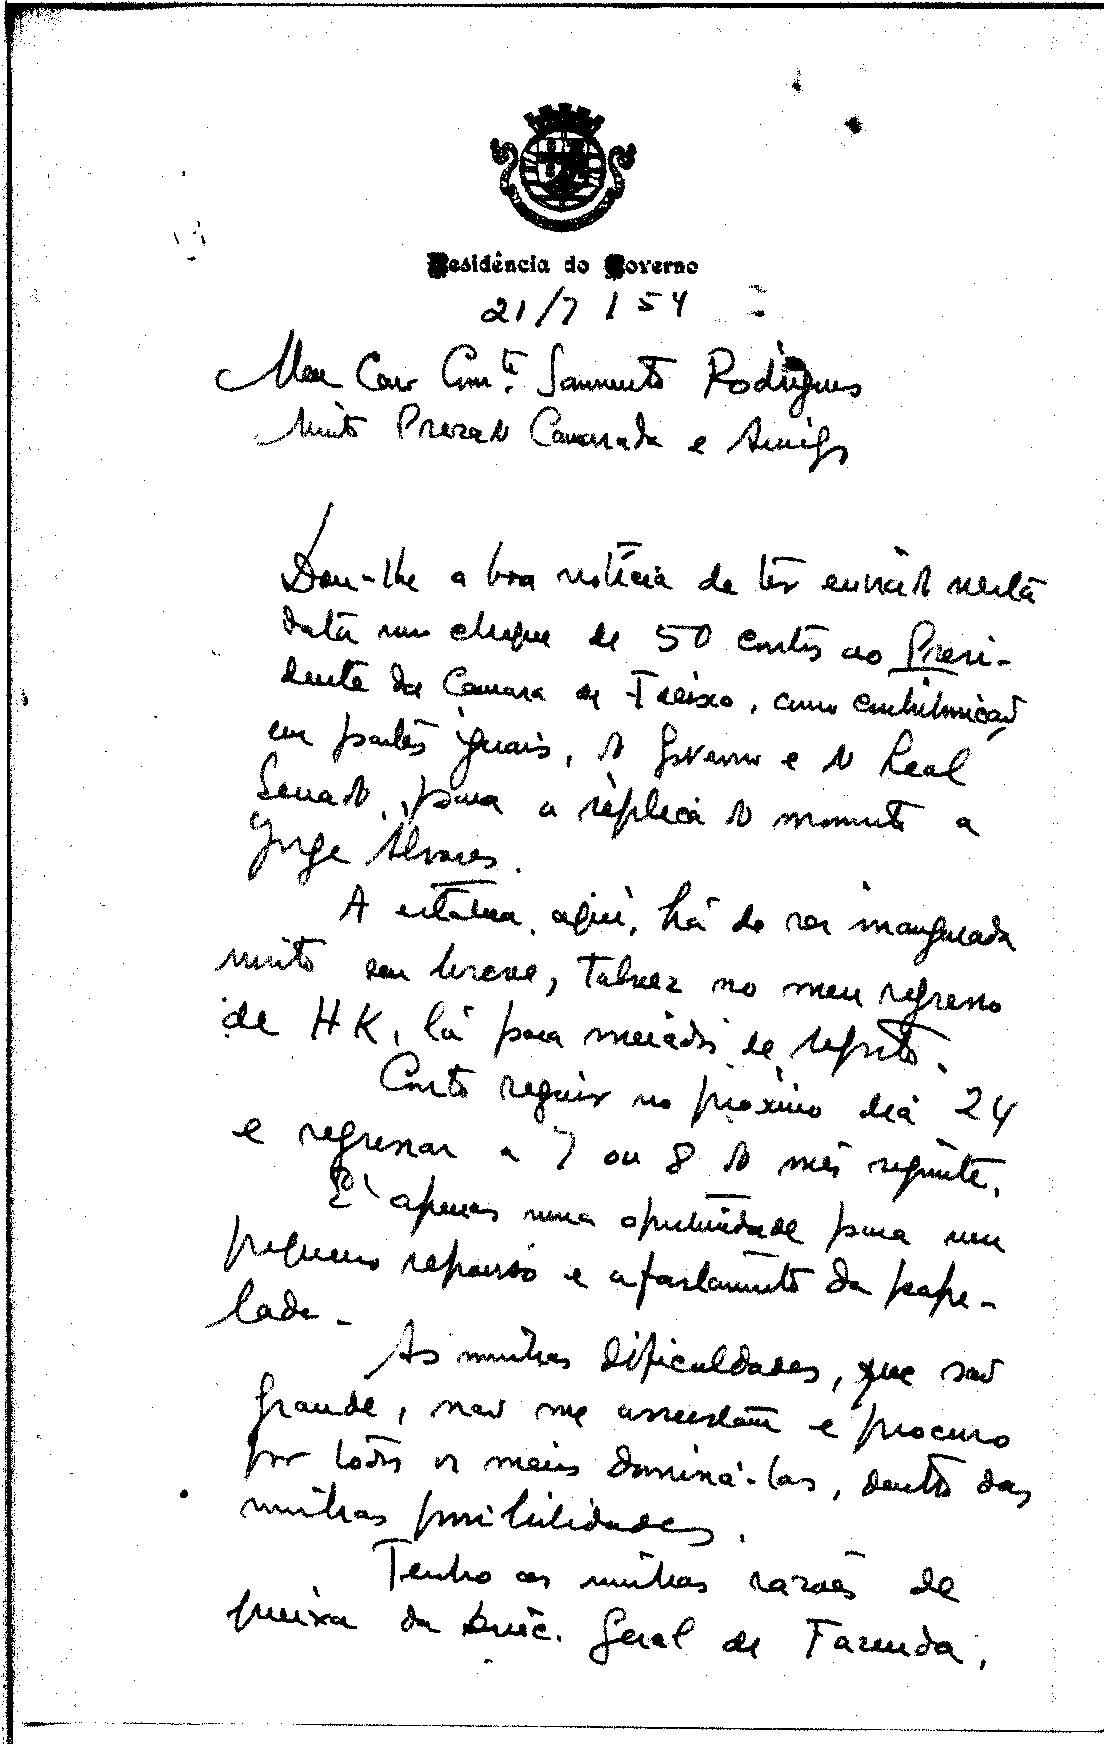 Residência do Governo
21/7/54
Meu Caro Cmte. Sarmento Rodrigues
Muito Prezado Camarada e Amigo
Dou-lhe a boa notícia de ter enviado nesta
data um cheque de 50 contos ao Presi-
dente da Camara de Freixo, como contribuição
em partes iguais, do Governo e do Leal
Senado, para a réplica do monumento a
Jorge Álvares.
A estatua, aqui, há de ser inaugurada
muito em breve, talvez no meu regresso
de HK, lá para meiados de agosto.
Conto seguir no próximo dia 24
e regressar a 7 ou 8 do mês seguinte.
É apenas uma oportunidade para um
pequeno repouso e afastamento da pape-
lada.
As minhas dificuldades, que são
grande, não me assustam e procuro
por todos os meios dominá-las, dentro das
minhas possibilidades.
Tenho as minhas razões de
queixa da Direc. Geral de Fazenda,